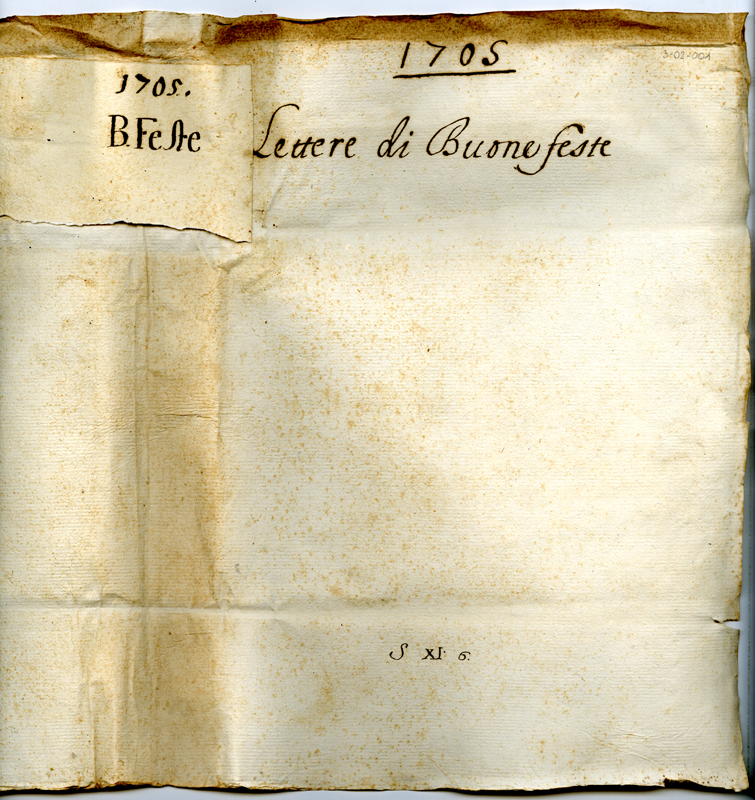 1705.
B. Feste
1705
Lettere di Buone feste
S XI. 6.